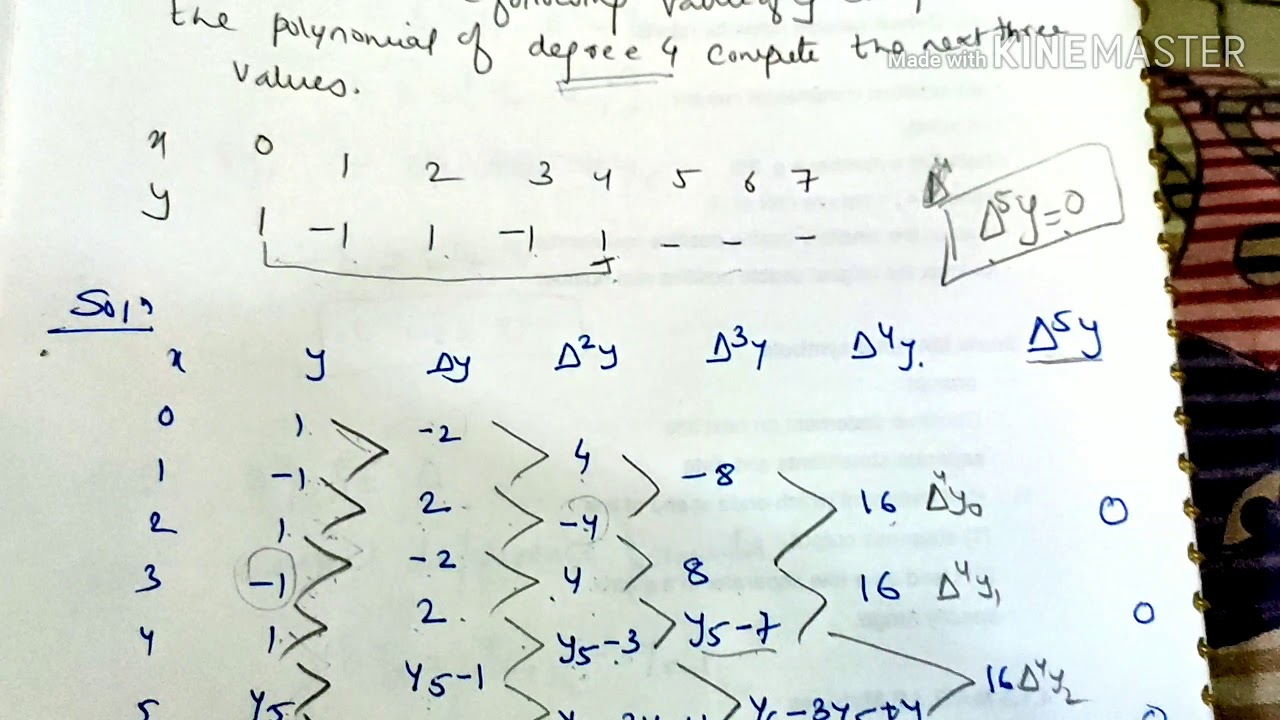 following value of y
the polynomial of degree 4 compute the next three
values.
Made with KINEMASTER
x 0 1 2 3 4 5 6 7
y 1 -1 1 -1 1 - - -
Δ⁵y=0
Soln
x y Δy Δ²y Δ³y Δ⁴y. Δ⁵y
0 1
-2
1 -1 4
2 -8
2 1 -4 16 Δ⁴y₀ 0
-2 8
3 -1 4 16 Δ⁴y₁ 0
2 y₅-7
4 1 y₅-3 16 Δ⁴y₂
y₅-1
5 y₅